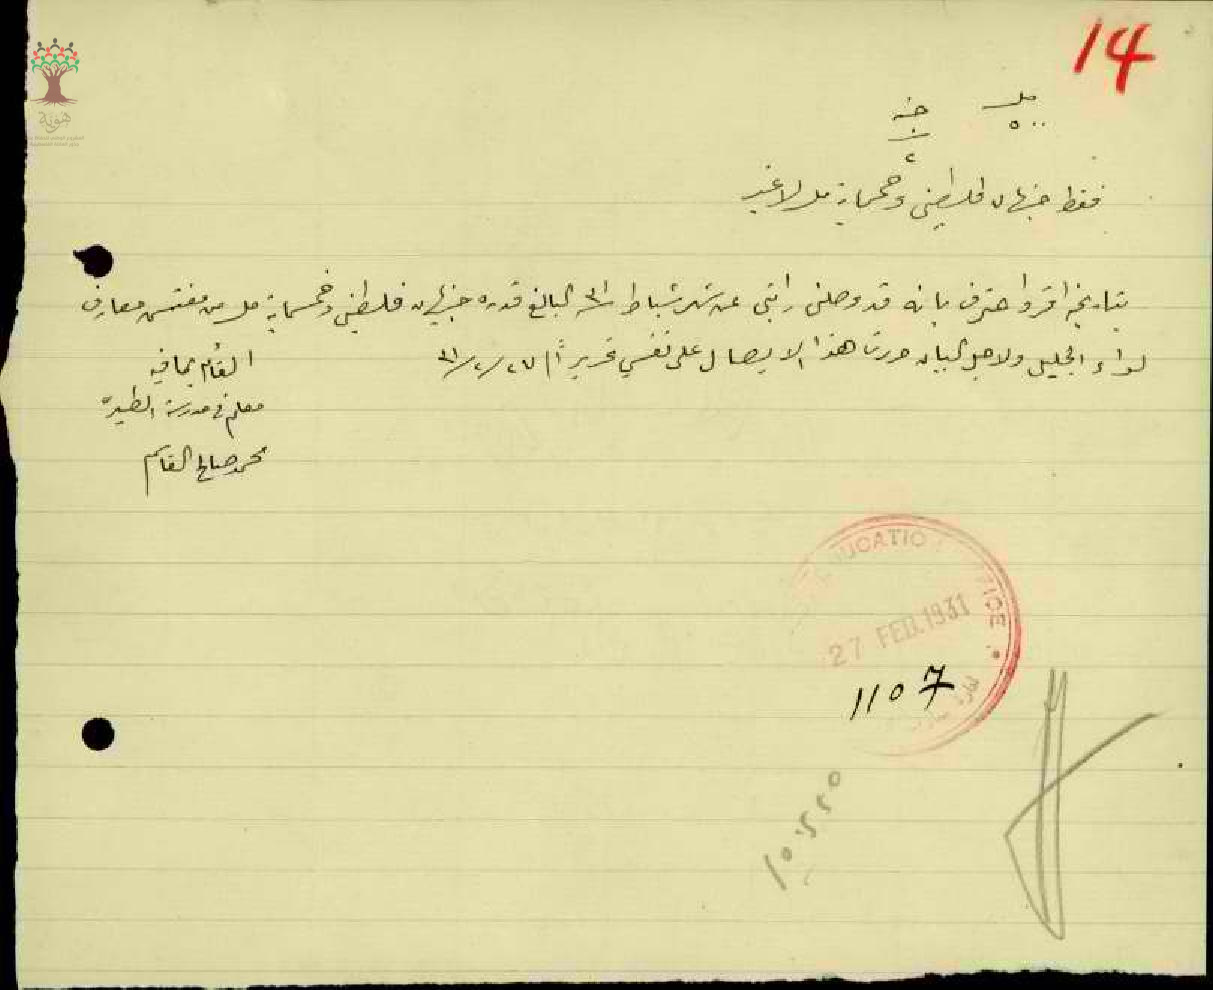 14
مل جنيه
٥٠٠ ٢
فقط جنيهان فلسطيني وخمسماية مل لا غير
بتاريخه اقر واعترف بانه قد وصلني راتبي عن شهر شباط ٩٣١ البالغ قدره جنيهان فلسطيني وخمسماية مل من مفتش معارف
لواء الجليل ولاجل البيان حررت هذا الايصال على نفسي تحريراً ٢٧/٢/٩٣١
المقر بما فيه
معلم في مدرسة الطيره
محمد صالح القاسم
EDUCATION OFFICE
27 FEB. 1931
1107
هوية